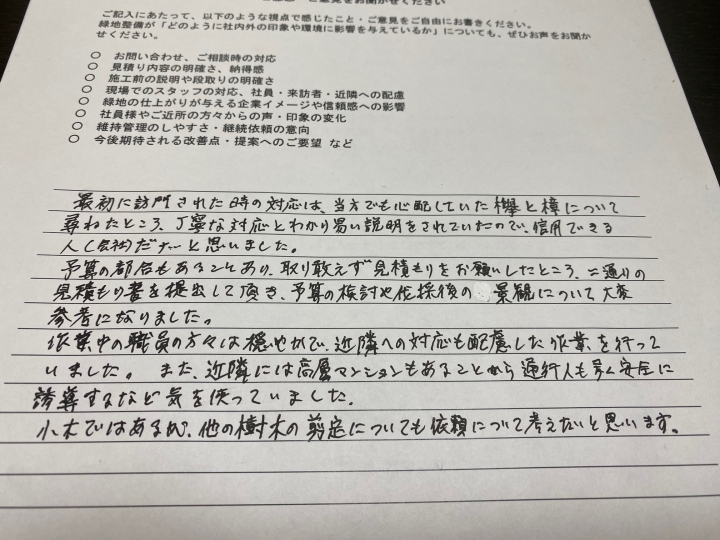 ご意見をお聞かせください
ご記入にあたって、以下のような視点で感じたこと・ご意見をご自由にお書きください。
緑地整備が「どのように社内外の印象や環境に影響を与えているか」についても、ぜひお声をお聞か
せください。
○ お問い合わせ、ご相談時の対応
○ 見積り内容の明確さ、納得感
○ 施工前の説明や段取りの明確さ
○ 現場でのスタッフの対応、社員・来訪者・近隣への配慮
○ 緑地の仕上がりが与える企業イメージや信頼感への影響
○ 社員様やご近所の方々からの声・印象の変化
○ 維持管理のしやすさ・継続依頼の意向
○ 今後期待される改善点・提案へのご要望 など
最初に訪門された時の対応は、当方でも心配していた欅と樟について
尋ねたところ、丁寧な対応とわかり易い説明をされていたので、信用できる
人(会社)だナーと思いました。
予算の都合もあることあり、取り敢えず見積もりをお願いしたところ、二通りの
見積もり書を提出して頂き、予算の検討や伐採後の 景観について大変
参考になりました。
作業中の職員の方々は穏やかで、近隣への対応も配慮した作業を行って
いました。 また、近隣には高層マンションもあることから通行人も多く安全に
誘導するなど気を使っていました。
小木ではあるが、他の樹木の剪定についても依頼について考えたいと思います。